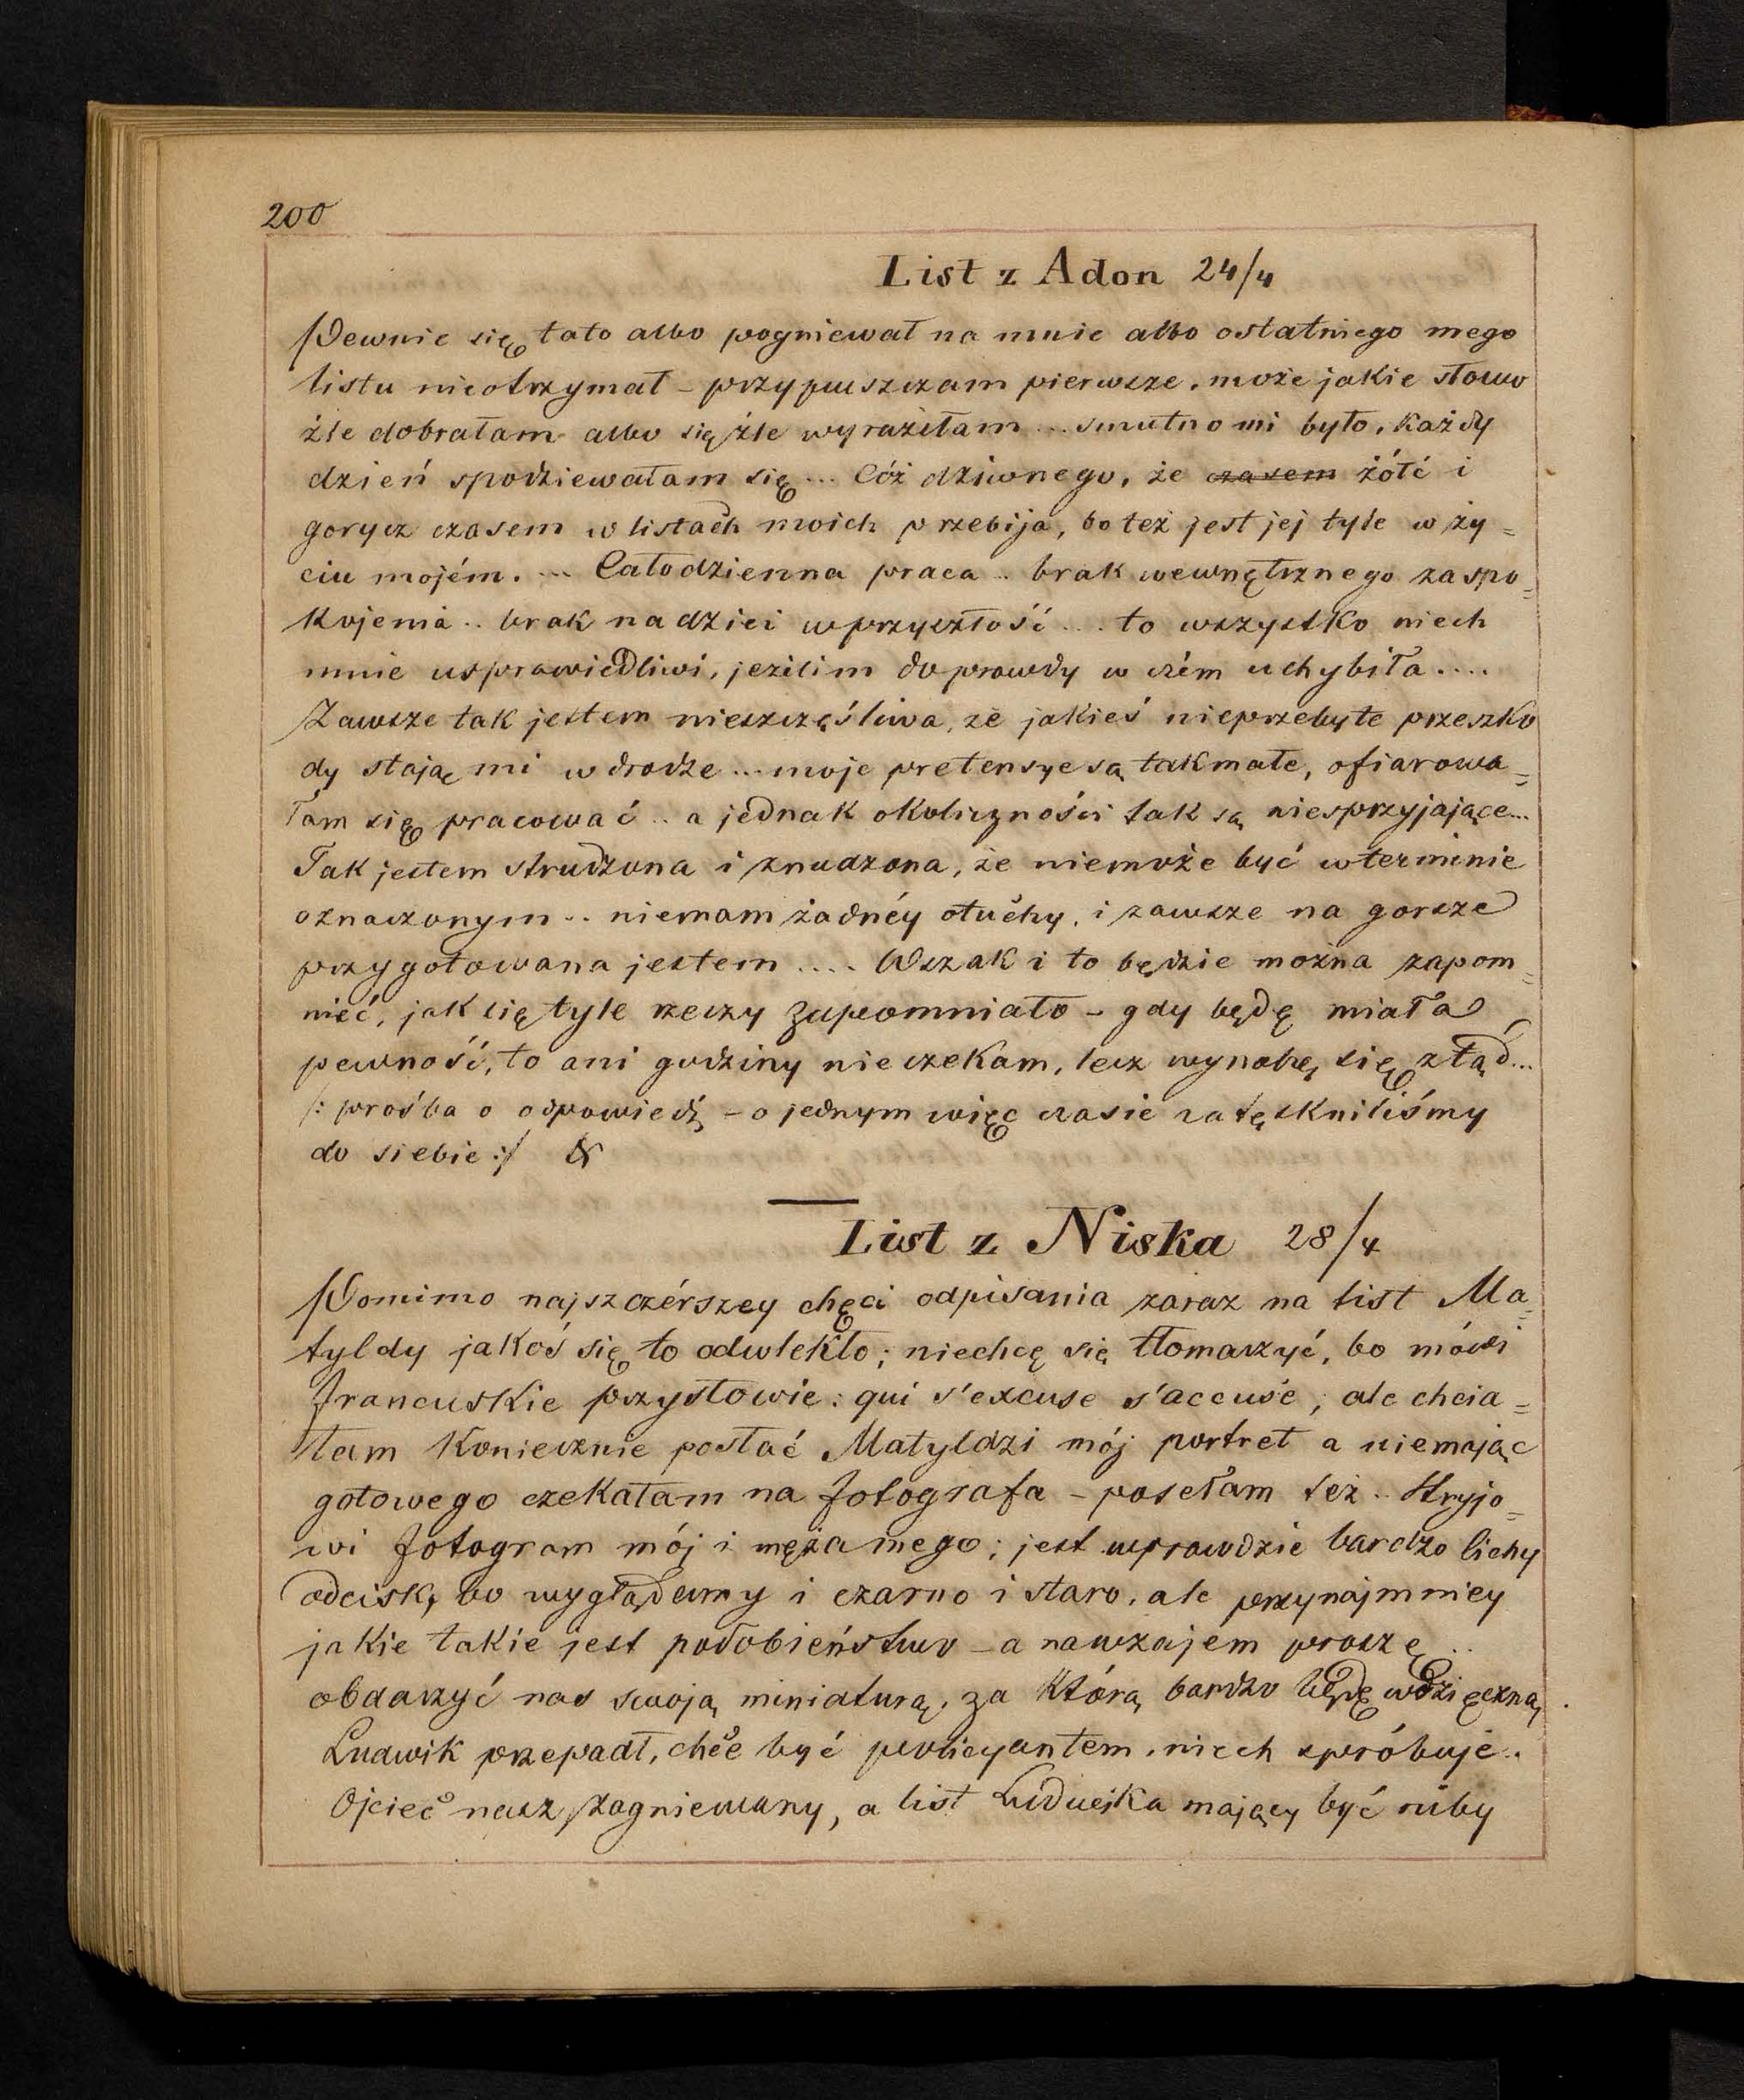 200
List z Adon 24/4
Pewnie się tato albo pogniewał na mnie albo ostatniego mego
listu nieotrzymał – przypuszczam pierwsze, może jakie słowo
źle dobrałam albo się źle wyraziłam ... smutno mi było, każdy
dzień spodziewałam się ... Cóż dziwnego, że czasem żółć i
gorycz czasem w listach moich przebija, bo też jest jej tyle w ży=
ciu mojém. ... Całodzienna praca .. brak wewnętrznego zaspo=
kojenia .. brak nadziei w przyszłość ... to wszystko niech
mnie usprawiedliwi, jeżilim doprawdy w czém uchybiła ....
Zawsze tak jestem nieszczęśliwa, że jakieś nieprzebyte przeszko
dy stają mi w drodze ... moje pretensye są tak małe, ofiarowa=
łam się pracować .. a jednak okoliczności tak są niesprzyjające...
Tak jestem strudzona i znudzona, że niemoże być w terminie
oznaczonym .. niemam żadnéy otuchy, i zawsze na gorsze
przygotowana jestem .... Wszak i to będzie można zapom=
nieć, jak się tyle rzeczy zapomniało – gdy będę miała
pewność, to ani godziny nieczekam, lecz wynoszę się ztąd...
/: prośba o odpowiedź – o jednym więc czasie zatęskniliśmy
do siebie :/ &
List z Niska 28/4
Pomimo najszczérszey chęci odpisania zaraz na list Ma=
tyldy jakoś się to odwlekło; niechcę się tłomaczyć, bo mówi
francuskie przysłowie: qui s'excuse s'accuse; ale chcia=
łam koniecznie posłać Matyldzi mój portret a niemając
gotowego czekałam na fotografa – posełam też .. Stryjo=
wi fotogram mój i męża mego; jest wprawdzie bardzo lichy
odcisk, bo wyglądamy i czarno i staro, ale przynajmniey
jakie takie jest podobieństwo – a nawzajem proszę ..
obdarzyć nas swoją miniaturą, za którą bardzo będę wdzięczną.
Ludwik przepadł, chce być policyantem, niech spróbuje..
Ojciec nasz zagniewany, a list Ludwika mający być niby